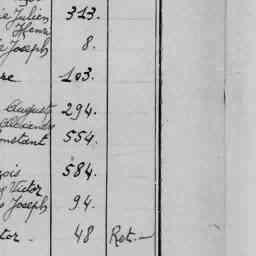 ie Julien 313.
Henri
e Joseph 8.
re 103.
August 294.
Alexandre
onstant 554.
çois 584.
Victor
Joseph 94.
tor - 48 Ret. -